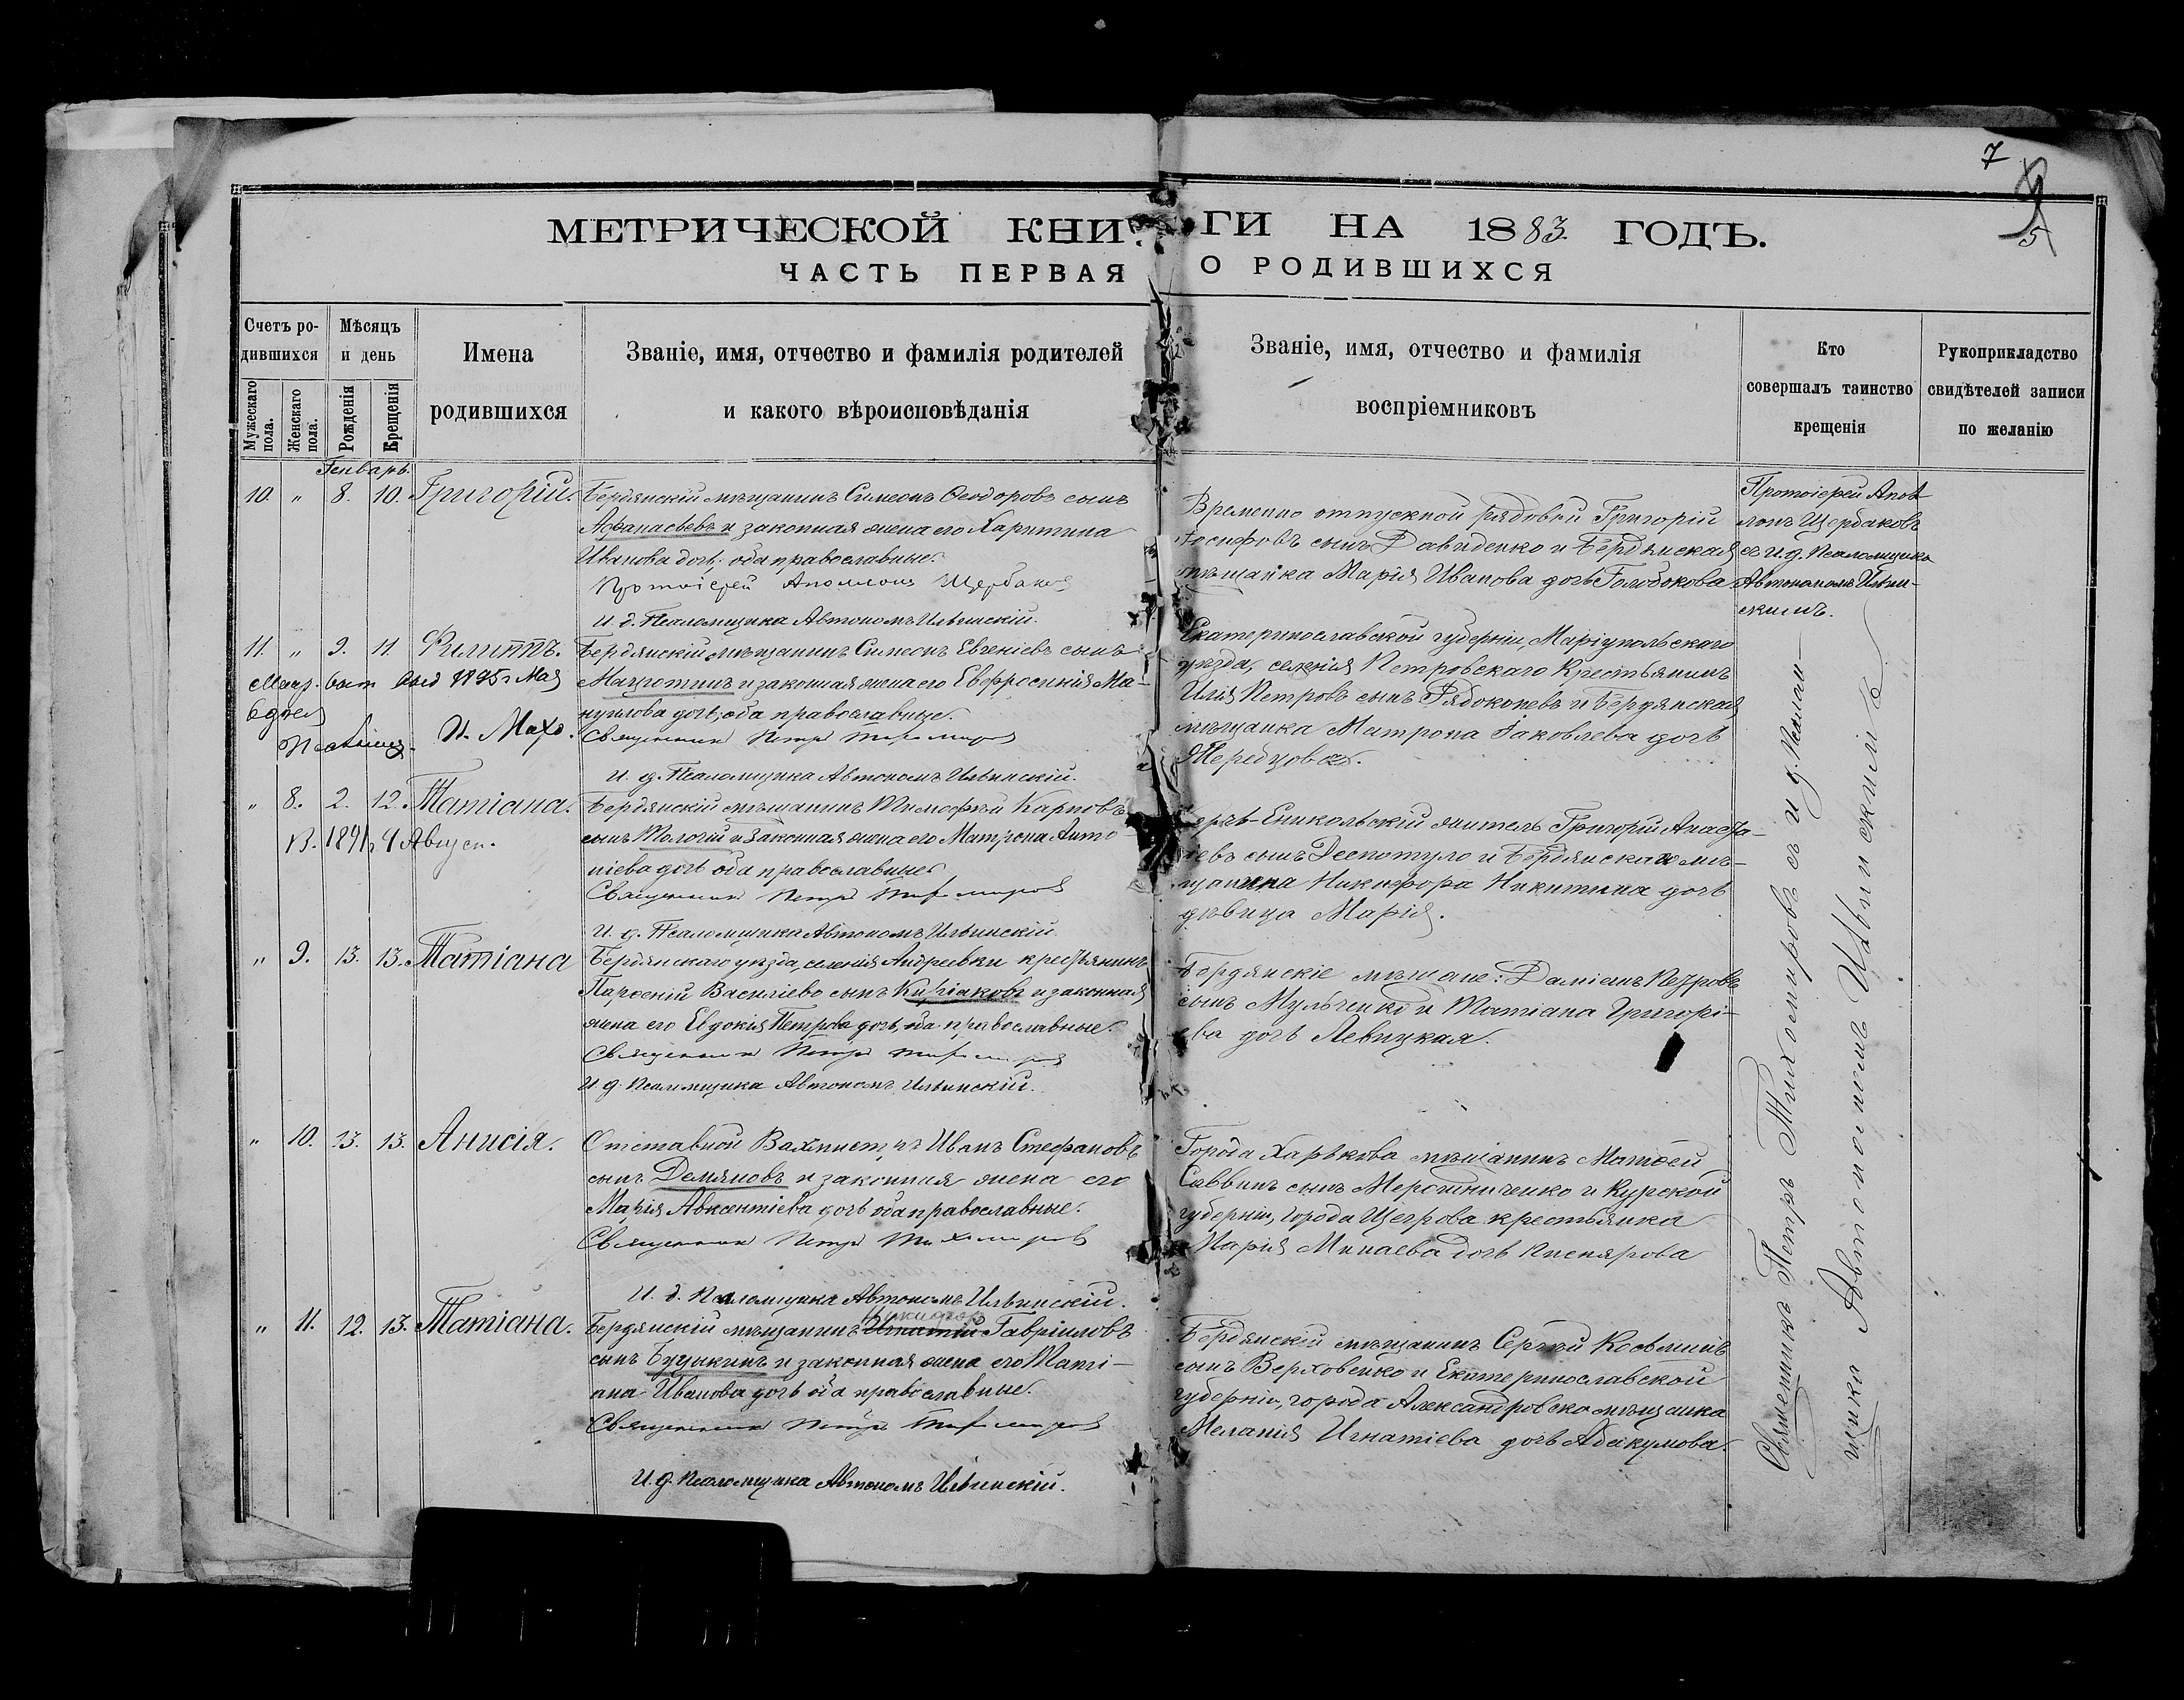 7
5
МЕТРИЧЕСКОЙ КНИГИ НА 1883 ГОДЪ.
ЧАСТЬ ПЕРВАЯ О РОДИВШИХСЯ
Счетъ родившихся
Мужескаго пола.
Женскаго пола.
Мѣсяцъ и день
Рожденія
Крещенія
Имена
родившихся
Званіе, имя, отчество и фамилія родителей
и какого вѣроисповѣданія
Званіе, имя, отчество и фамилія
воспріемниковъ
Кто
совершалъ таинство
крещенія
Рукоприкладство
свидѣтелей записи
по желанію
Генварь.
10. " 8. 10. Григорій.
Бердянскій мѣщанинъ Симеонъ Ѳеодоровъ сынъ
Афанасьевъ и законная жена его Харитина
Иванова дочь; оба православные.
Протоіерей Аполлонъ Щербаковъ
И. д. Псаломщика Автономъ Ильинскій.
Временно отпускной рядовой Григорій
Іосифовъ сынъ Давиденко и Бердянская
мѣщанка Марія Ивановa дочь Голобокова
Протоіерей Апол
лонъ Щербаковъ
съ И. д. Псаломщика
Автономомъ Ильин-
скимъ.
11. " 9. 11. Филиппъ.
1895 г. Мая
6 дня
Бердянскій мѣщанинъ Симеонъ Евгеніевъ сынъ
и законная жена его Евфросинія Ма-
нуилова дочь, оба православные.
Священникъ Петръ Тихомировъ
И. д. Псаломщика Автономъ Ильинскій.
Екатеринославской губерніи, Маріупольскаго
уѣзда, селенія Петровскаго крестьянинъ
Илія Петровъ сынъ Рябоконевъ и Бердянская
мѣщанка Матрона Іаковлева дочь
Жеребцова.
" 8. 2. 12. Татіана.
В. 1891 г. 4 Август.
Бердянскій мѣщанинъ Тимофѣй Карповъ
сынъ Тологій и законная жена его Матрона Анто-
ніева дочь оба православные
Священникъ Петръ Тихомировъ
И. д. Псаломщика Автономъ Ильинскій.
Керчь-Еникольскій житель Григорій Анаста-
сіевъ сынъ Деспотуло и Бердянскаго мѣ-
щанина Никифора Никитина дочь
дѣвица Марія.
" 9. 13. 13. Татіана
Бердянскаго уѣзда, селенія Андреевки крестьянинъ
Парѳеній Васильевъ сынъ Киріаковъ и законная
жена его Евдокія Петрова дочь, оба православные.
Священникъ Петръ Тихомировъ
И. д. Псаломщика Автономъ Ильинскій.
Бердянскіе мѣщане: Даміанъ Петровъ
сынъ Мульченко и Татіана Григорі-
ева дочь Левицкая.
" 10. 13. 13. Анисія.
Отставной Вахмистръ Иванъ Стефановъ
сынъ Демяновъ и законная жена его
Марія Авксентіева дочь оба православные.
Священникъ Петръ Тихомировъ
И. д. Псаломщика Автономъ Ильинскій.
Города Харькова мѣщанинъ Матѳей
Саввинъ сынъ Мерошниченко и Курской
губерніи, города Щегрова крестьянка
Марія Минаева дочь
" 11. 12. 13. Татіана.
Никифоръ
Бердянскій мѣщанинъ Игнатій Гавріиловъ
сынъ и законная жена его Татi-
ана Иванова дочь оба православные.
Священникъ Петръ Тихомировъ
И. д. Псаломщика Автономъ Ильинскій.
Бердянскій мѣщанинъ Сергѣй Косьминъ
сынъ Верховенко и Екатеринославской
губерніи, города Александровска мѣщанка
Меланія Игнатіева дочь Абакумова.
Священникъ Петръ Тихомировъ съ и д. Псалом-
щика Автономомъ Ильинскимъ